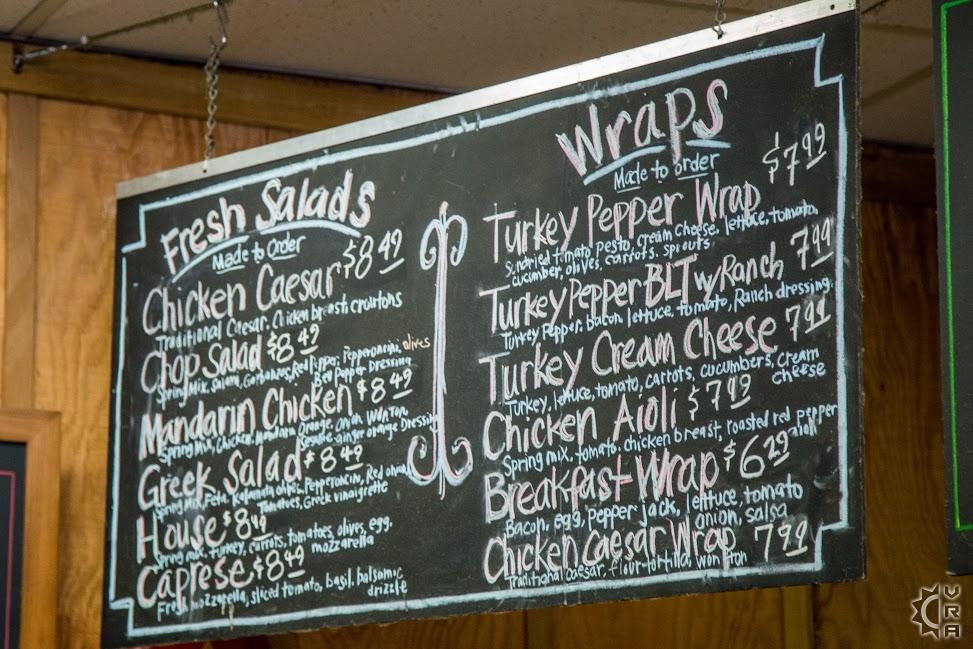 Fresh Salads
Made to Order
Chicken Caesar $8.49
Traditional Caesar, Chicken breast, croutons
Chop Salad $8.49
Spring Mix, Salami, Garbanzos, Red Pepper, Pepperoncini, olives
Bell Pepper Dressing
Mandarin Chicken $8.49
Spring Mix, Chicken, Mandarin Orange, Onion, Wonton,
Sesame ginger orange Dressing
Greek Salad $8.49
Spring Mix, Feta, Kalamata olives, Pepperoncini, Red onion
Tomatoes, Greek vinaigrette
House $8.49
Spring mix, turkey, carrots, tomatoes, olives, egg,
mozzarella
Caprese $8.49
Fresh mozzarella, sliced tomato, basil, balsamic
drizzle
Wraps
Made to order
Turkey Pepper Wrap $7.99
Sundried tomato pesto, cream cheese, lettuce, tomato,
cucumber, olives, carrots, sprouts
Turkey Pepper BLT w/ Ranch 7.99
Turkey Pepper, bacon, lettuce, tomato, Ranch dressing.
Turkey Cream Cheese 7.99
Turkey, lettuce, tomato, carrots, cucumbers, cream
cheese
Chicken Aioli $7.99
Spring mix, tomato, chicken breast, roasted red pepper
aioli
Breakfast Wrap $6.29
Bacon, egg, pepper jack, lettuce, tomato
onion, salsa
Chicken Caesar Wrap 7.99
Traditional caesar, flour tortilla, wonton
VRA